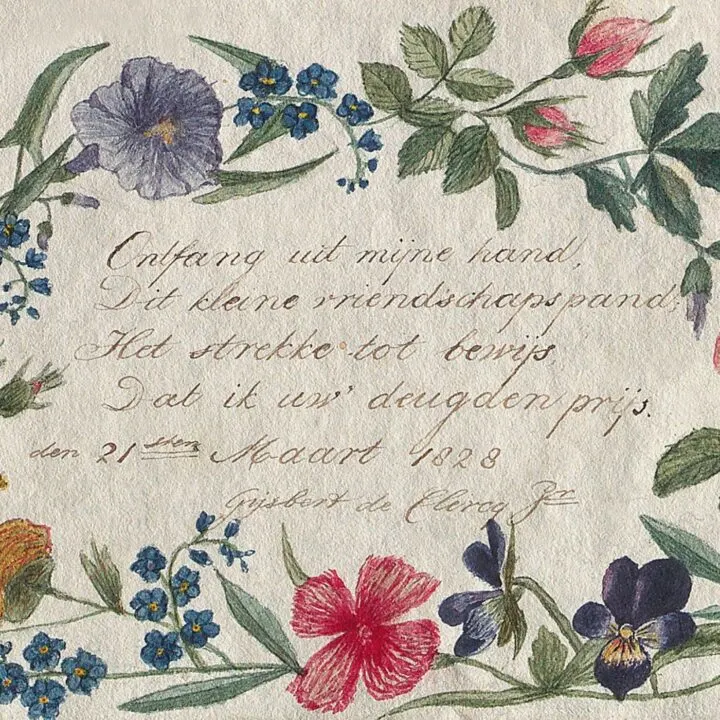 Ontfang uit mijne hand,
Dit kleine vriendschapspand;
Het strekke tot bewijs,
Dat ik uw' deugden prijs.
den 21sten Maart 1828
Gijsbert de Clercq